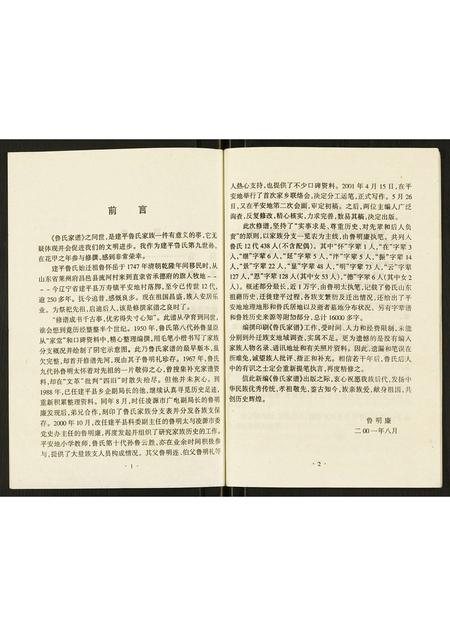 前言
《鲁氏家谱》之问世,是建平鲁氏家族一件有意义的事,它无
疑体现并会促进我们的文明进步。我作为建平鲁氏第九世孙,
在花甲之年参与修撰,感到非常荣幸。
建平鲁氏始迁祖鲁怀岳于1747年清朝乾隆年间移民时,从
山东省莱州府昌邑县流河村来到直隶省承德府的旗人牧地--
--今辽宁省建平县万寿镇平安地村落脚,至今已传世12代,
逾250多年。抚今追昔,感慨良多。现在祖国昌盛,族人安居乐
业。为祭祀先祖,启迪后人,该是修撰家谱之良时了。
"修谱成书千古事,优劣得失寸心知"。此道从孕育到问世,
综合想到竟历经整整半个世纪。1950年,鲁氏第八代孙鲁显臣
从"家堂"和口碑资料中,精心整理编撰,用毛笔小楷书写了家族
分支概况并绘制了阴宅示意图。此乃鲁氏家谱的最早版本,虽
欠完整,却首开修谱先河,现由其子鲁明礼珍存。1967年,鲁氏
九代孙鲁明太怀着对先祖的一片敬仰之心,曾搜集补充家谱资
料,却在"文革"批判"四旧"时散失殆尽。但他并未灰心。到
1988年,已任建平县乡企副局长的他,继续认真寻觅历史足迹,
重新积累整理资料。同年8月,时任凌源市广电副局长的鲁明
廉发现后,弟兄合作,刻印了鲁氏家族分支表并分发各族支保
存。2000年10月,改任建平县科委副主任的鲁明太与凌源市委
党史办主任的鲁明廉,再度发起并组织了研究家族历史的工作。
平安地小学教师、鲁氏第十代孙鲁云胜,亦在业余时间积极参
与,提供了大量族支人员构成情况。其父鲁明连、伯父鲁明礼等
·1·
人热心支持,也提供了不少口碑资料。2001年4月15日,在平
安地举行了首次家乡联络会,决定分工运笔,正式写作。5月26
日,又在平安地第二次会面,审定初稿。之后,两位主编人广泛
调查,反复修改,精心核实,力求完善,数易其稿,决定出版。
此次修谱,坚持了"实事求是,尊重历史,对先辈和后人负
责"的原则,以家族分支一览表为主线,由鲁明廉执笔。共列入
鲁氏12代438人(不含配偶)。其中"怀"字辈1人,"在"字辈3
人,"继"字辈6人,"延"字辈5人,"泮"字辈5人,"振"字辈14
人,"景"字辈22人,"显"字辈48人,"明"字辈73人,"云"字辈
127人,"恩"字辈128人(其中女53人),"德"字辈6人(其中女2
人)。概述部分最长,近1万字,由鲁明太执笔,记载了鲁氏山东
祖籍历史、迁徙建平过程、各族支繁衍及迁出情况,还绘出了平
安地地理地形和鲁氏居住地以及逝者墓地分布状况。另有字辈谱
和鲁姓历史来源等附加部分,总计16000多字。
编撰印刷《鲁氏家谱》工作,受时间、人力和经费限制,未能
分别到外迁族支地域调查,实属不足。更为遗憾的是没有编入
家族人物名录、通讯地址和有关照片资料。因此,遗漏和笔误在
所难免,诚望族人批评、指正和补充。相信若干年后,鲁氏后人
中的有识之士定会重新提笔执言,再度精修。
值此新编《鲁氏家谱》出版之际,衷心祝愿我族后代,发扬中
华民族优秀传统,孝祖敬先,鉴古知今,族亲族爱,献身祖国,共
创历史辉煌。
鲁明廉
二00一年八月
·2·